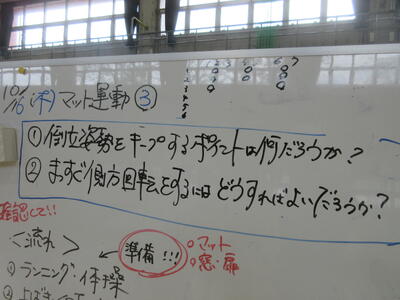 1 2 3 4 5 6 7
1
2
3
4
5
6
10/16(木)マット運動③
①倒立姿勢をキープするポイントは何だろうか？
②まっすぐ側方回転をするにはどうすればよいだろうか？
確認して!!
＜流れ＞
準備!!!
○マット
○窓・扉
①ランニング・体操